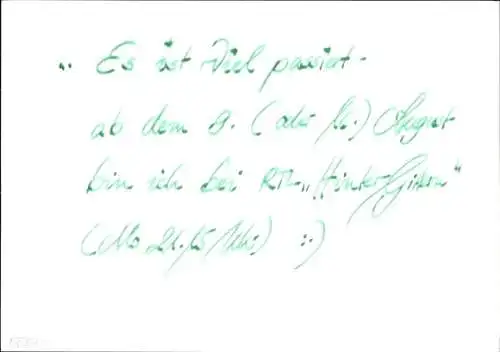 .. Es ist viel passiert -
ab dem 9. (oder 16.) August
bin ich bei RTL „Hinter Gittern"
(Mo 21.15 Uhr) :-)